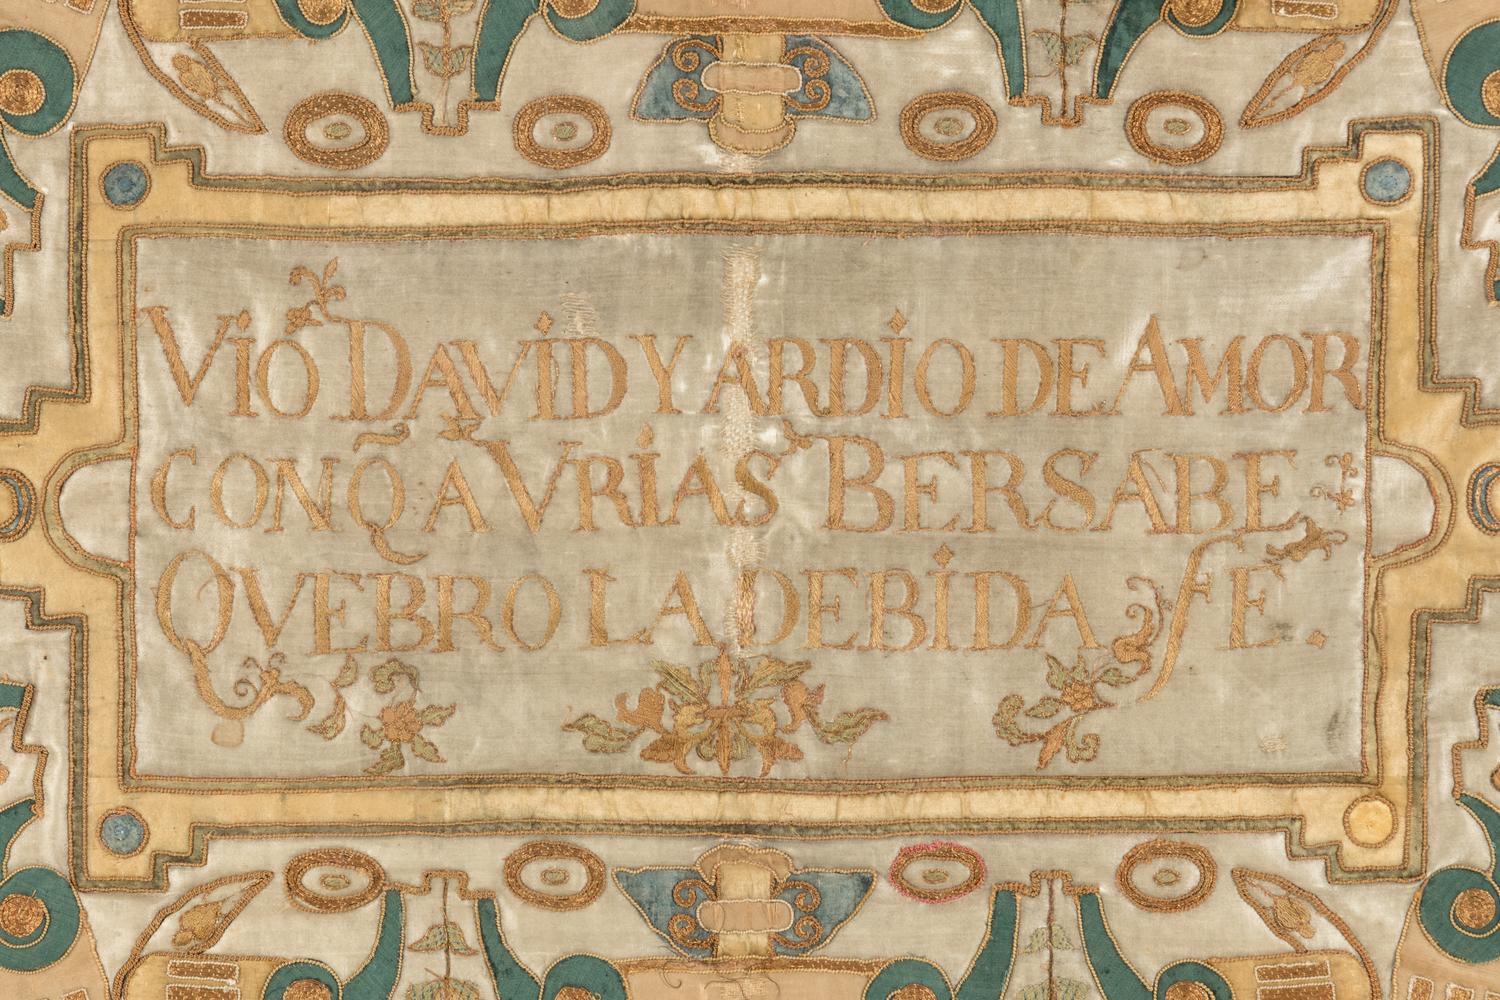 VIO DAVID Y ARDIO DE AMOR
CON Q̃ A VRIAS BERSABE
QVEBRO LA DEBIDA FE.